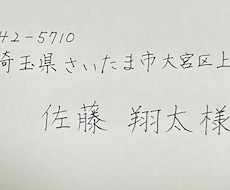 42-5710
埼玉県さいたま市大宮区上
佐藤 翔太様